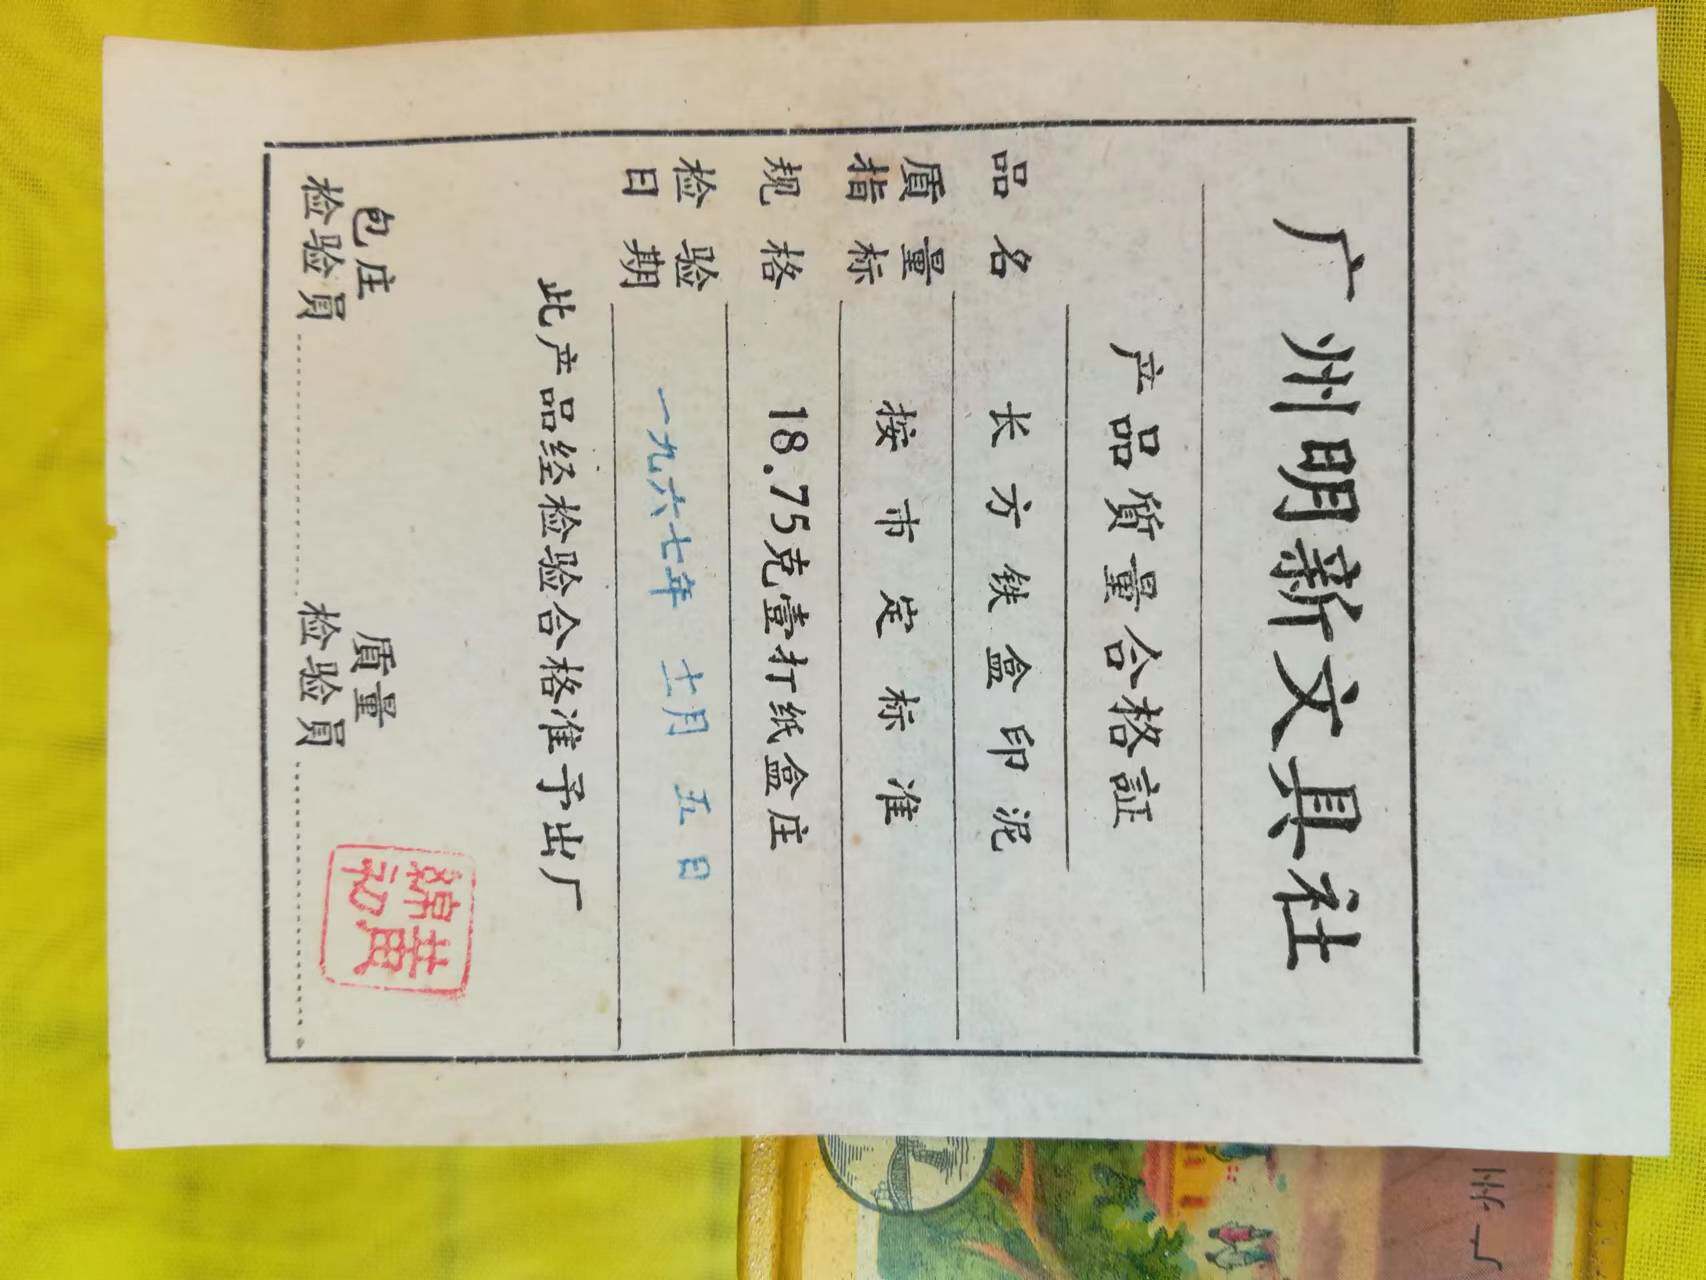 广州明新文具社
产品质量合格証
品名 长方铁盒印泥
質量指标 按市定标准
规格 18.75克壹打纸盒庄
检验日期 一九六七年 十一月 五日
此产品经检验合格准予出厂
包庄检验员
质量检验员
黄錦初
州一厂